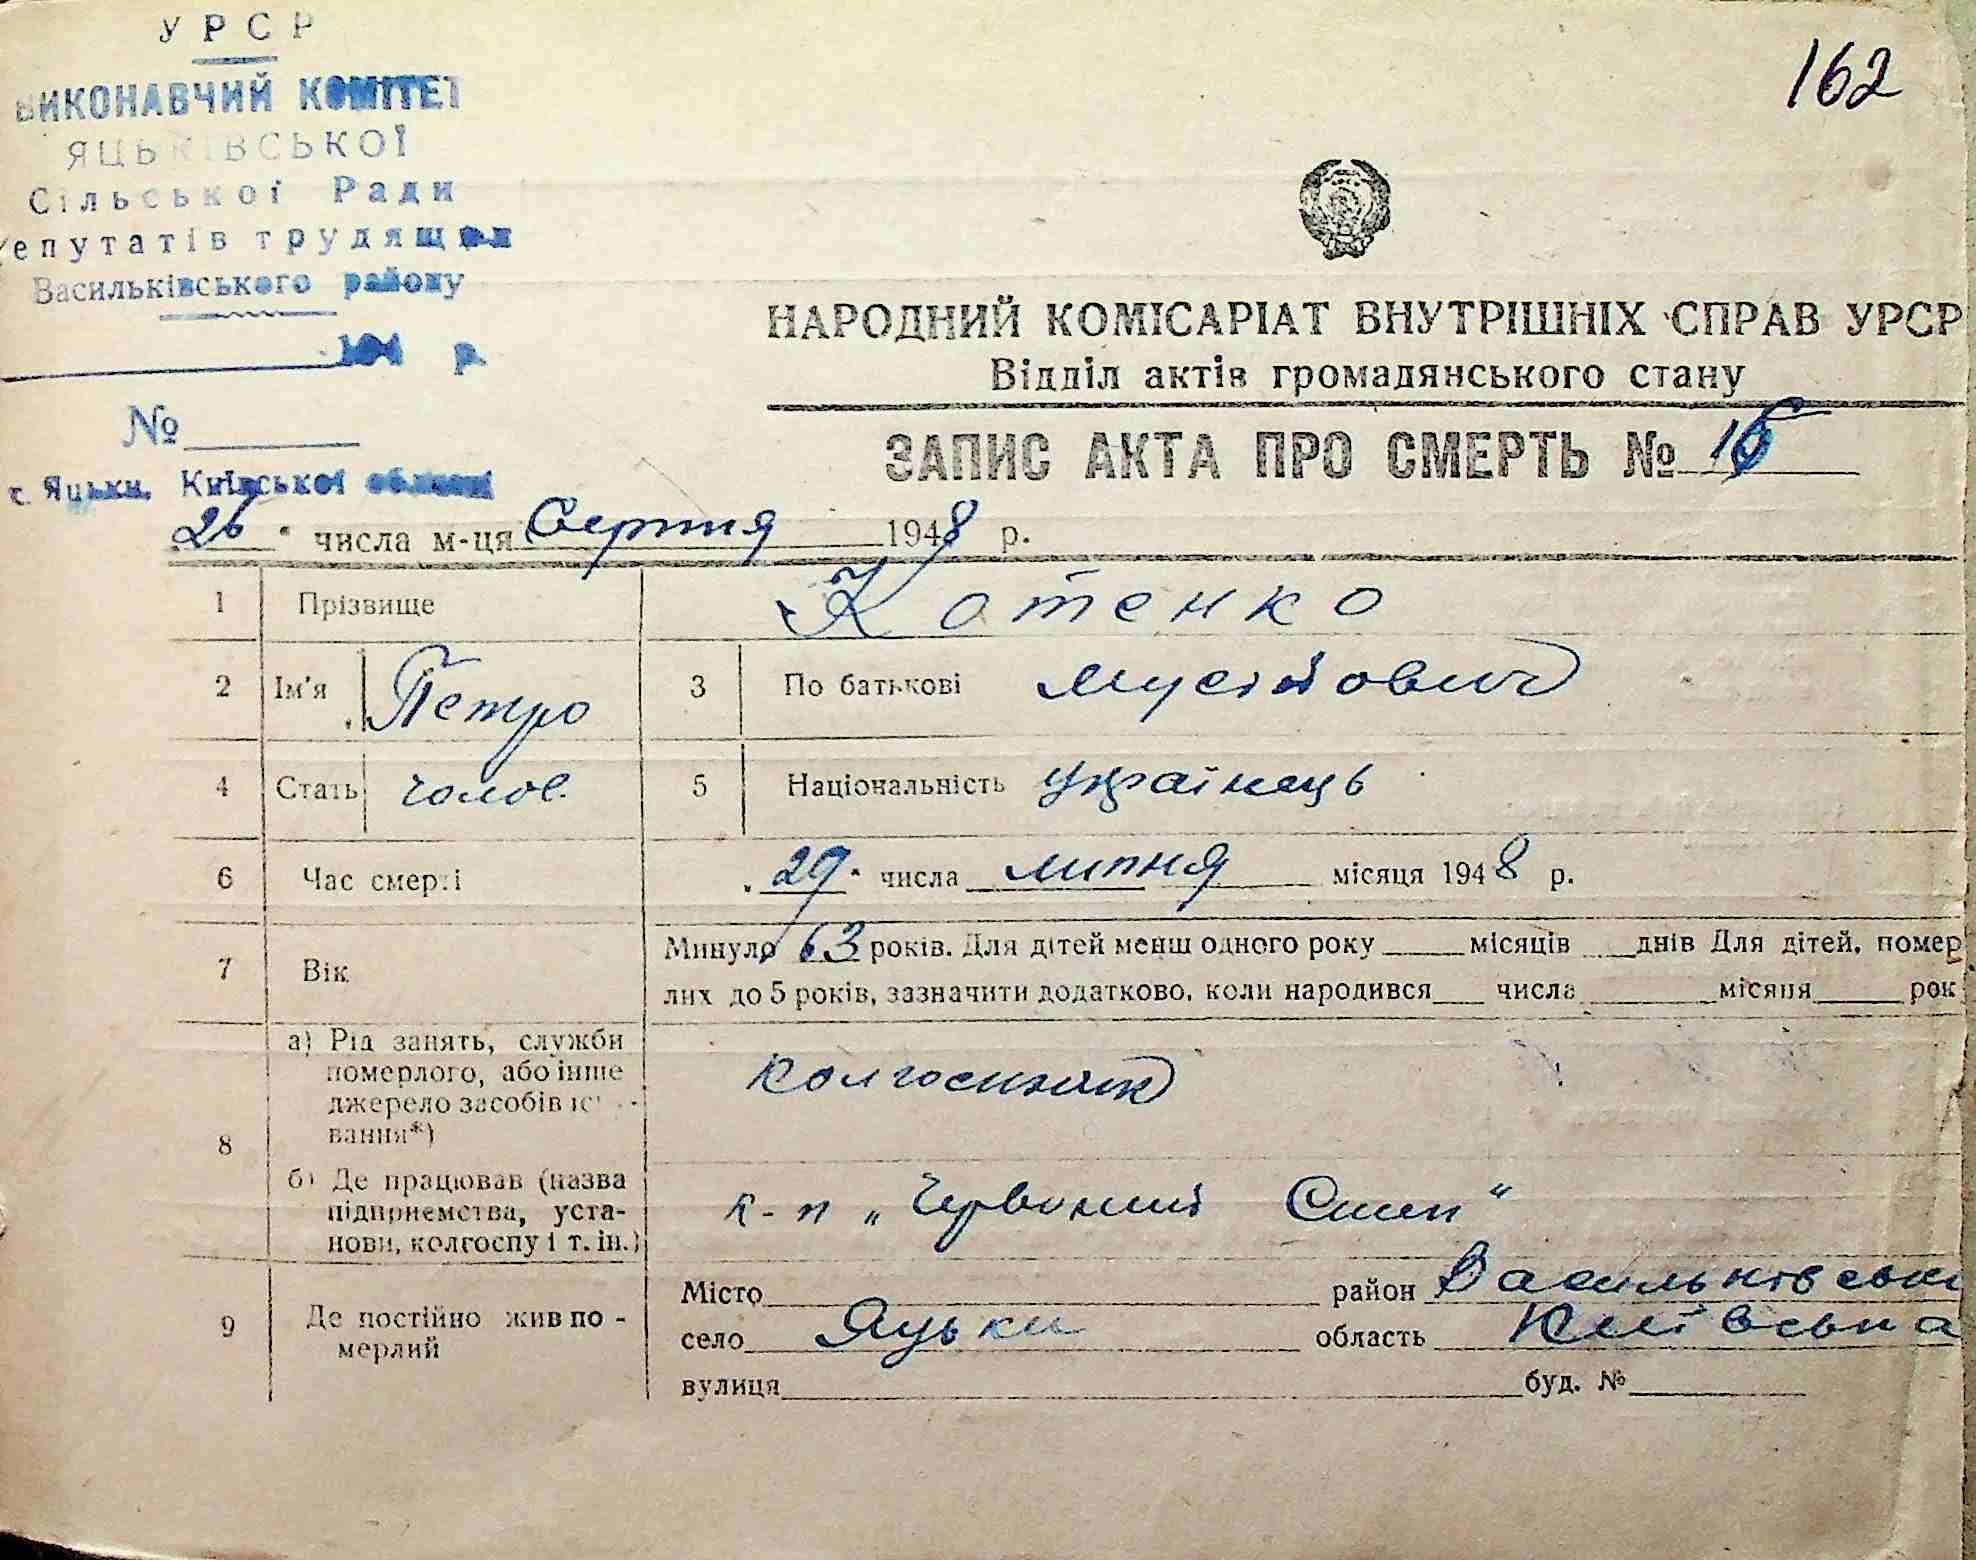 УРСР
ВИКОНАВЧИЙ КОМІТЕТ
ЯЦЬКІВСЬКОЇ
Сільської Ради
депутатів трудящих
Васильківського району
194 р.
№
с. Яцьки, Київської області
162
НАРОДНИЙ КОМІСАРІАТ ВНУТРІШНІХ СПРАВ УРСР
Відділ актів громадянського стану
ЗАПИС АКТА ПРО СМЕРТЬ №
26 числа м-ця Серпня 1948 р.
1 Прізвище Котенко
2 Ім'я Петро 3 По батькові Мусійович
4 Стать чолов. 5 Національність українець
6 Час смерті 29 числа липня місяця 1948 р.
7 Вік Минуло 63 років. Для дітей менш одного року місяців днів Для дітей, помер
лих до 5 років, зазначити додатково, коли народився числа місяця рок
8 а) Рід занять, служби
померлого, або інше
джерело засобів іс
вання*)
колгоспник
б) Де працював (назва
підприємства, уста-
нови, колгоспу і т. ін.)
к-п „Червоний Степ"
9 Де постійно жив по-
мерлий
Місто район Васильківськи
село Яцьки область Київська
вулиця буд. №